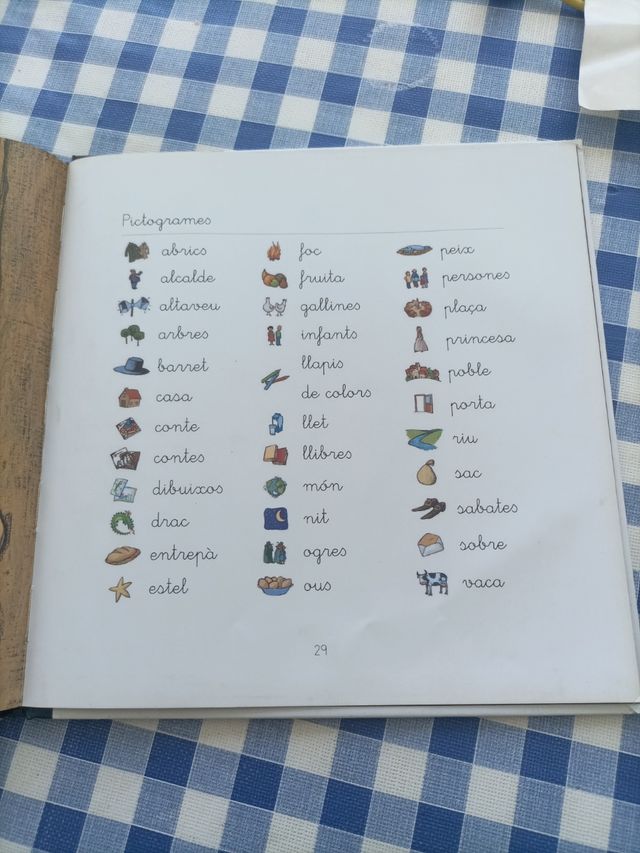 Pictogrames
abrics
alcalde
altaveu
arbres
barret
casa
conte
contes
dibuixos
drac
entrepà
estel
foc
fruita
gallines
infants
llapis
de colors
llet
llibres
món
nit
ogres
ous
peix
persones
plaça
princesa
poble
porta
riu
sac
sabates
sobre
vaca
29